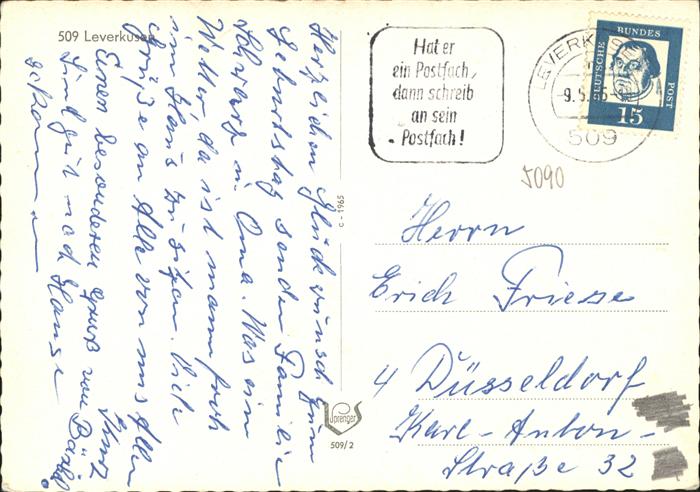 509 Leverkusen
Herzlichen Glückwunsch zum
Geburtstag senden Familie
Schwarz u. Oma. Was ein
Wetter, da ist mann froh
im Haus zu sitzen. Viele
Grüße an Alle von uns Allen
Einen besonderen Gruß von
Sind gut nach Hause
gekommen
Hat er
ein Postfach,
dann schreib
an sein
Postfach!
LEVERK
-9.5.65
509
DEUTSCHE BUNDES POST
15
5090
c - 1965
Sprenger
509/2
Herrn
Erich Friese
4 Düsseldorf
Karl-Anton-
Straße 32